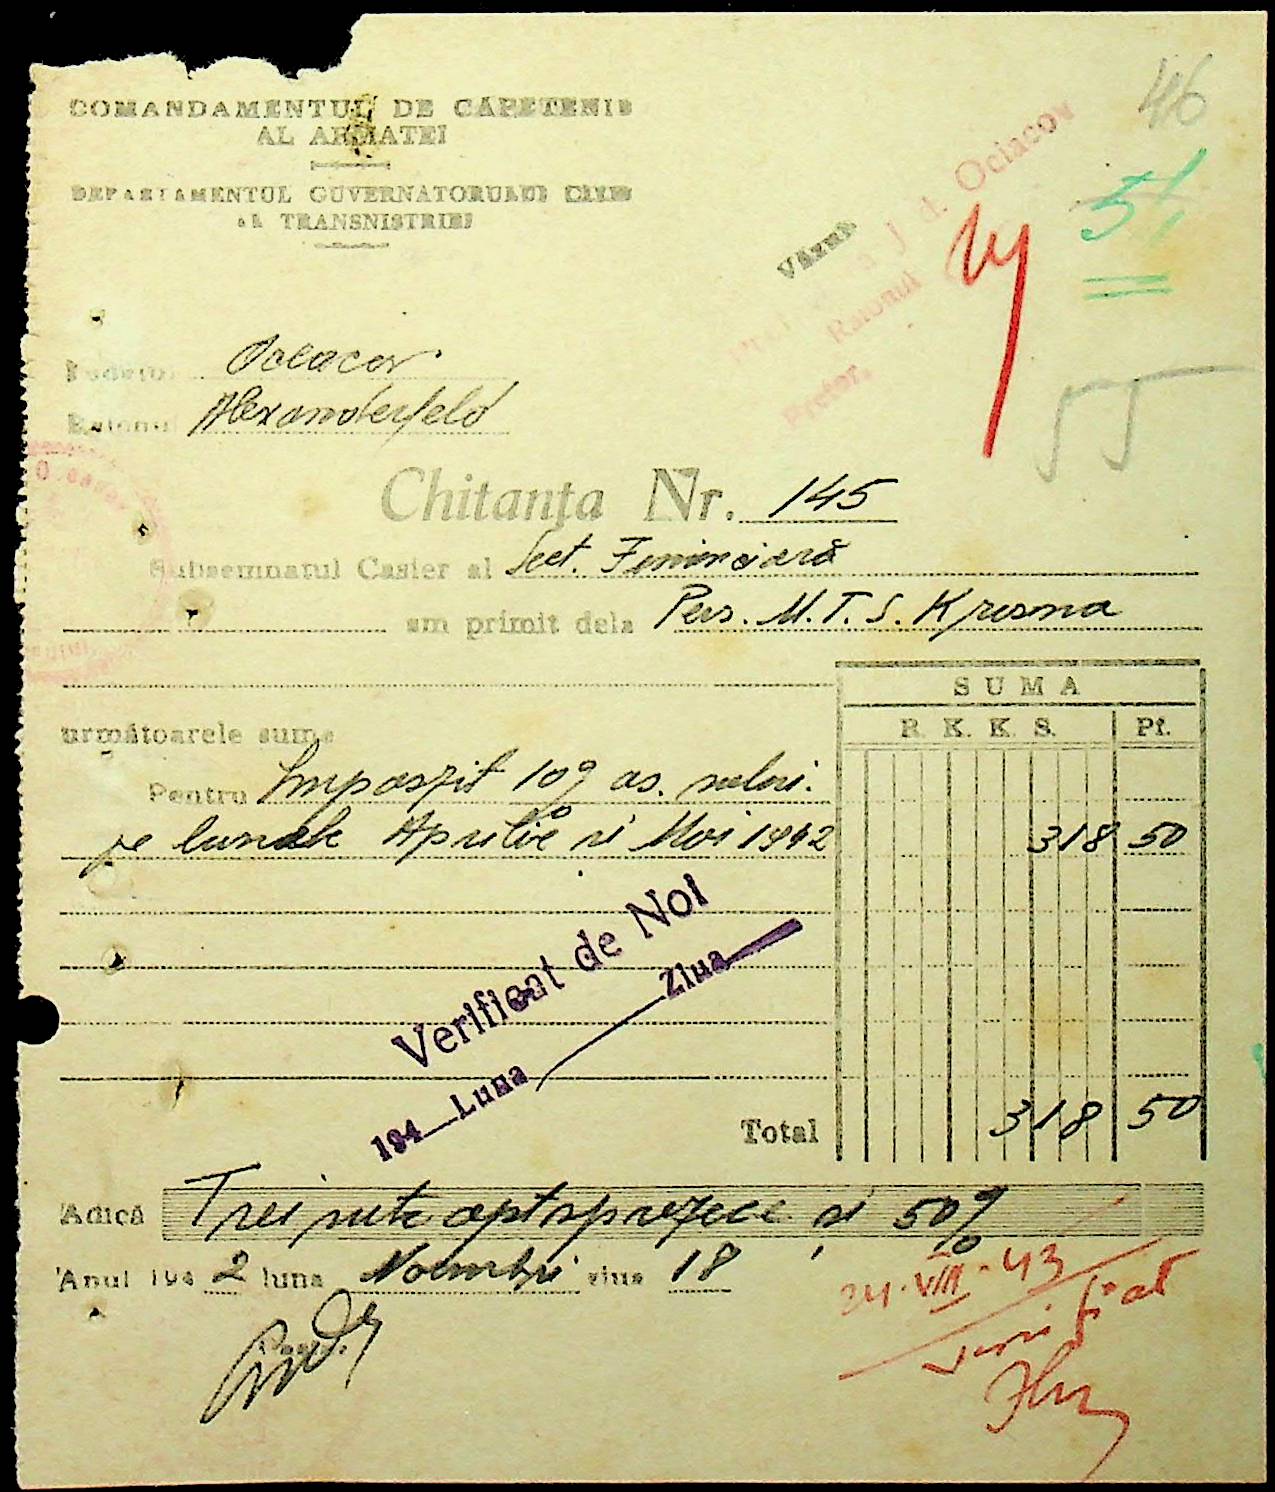 46
COMANDAMENTUL DE CAPETENIE
AL ARMATEI
DEPARTAMENTUL GUVERNATORULUI CIVIL
AL TRANSNISTRIEI
51
Văzut
jd. Ociacov
Raionul
Pretor,
Judeţul Oceacov
Raionul Alexanderfeld
55
Chitanţa Nr. 145
Subsemnatul Casier al Sect. Financiară
am primit dela Pers. M.T.S. Kresna
SUMA
următoarele sume
R. K. K. S. Pf.
Pentru Impozit 10% as. salari.
pe lunele Aprilie si Mai 1942 318 50
Verificat de Noi
194 Luna Ziua
Total 318 50
Adică Trei sute optsprezece si 50%
Anul 194 2 luna Noembri ziua 18
24.VIII.43
Verificat
Casier,